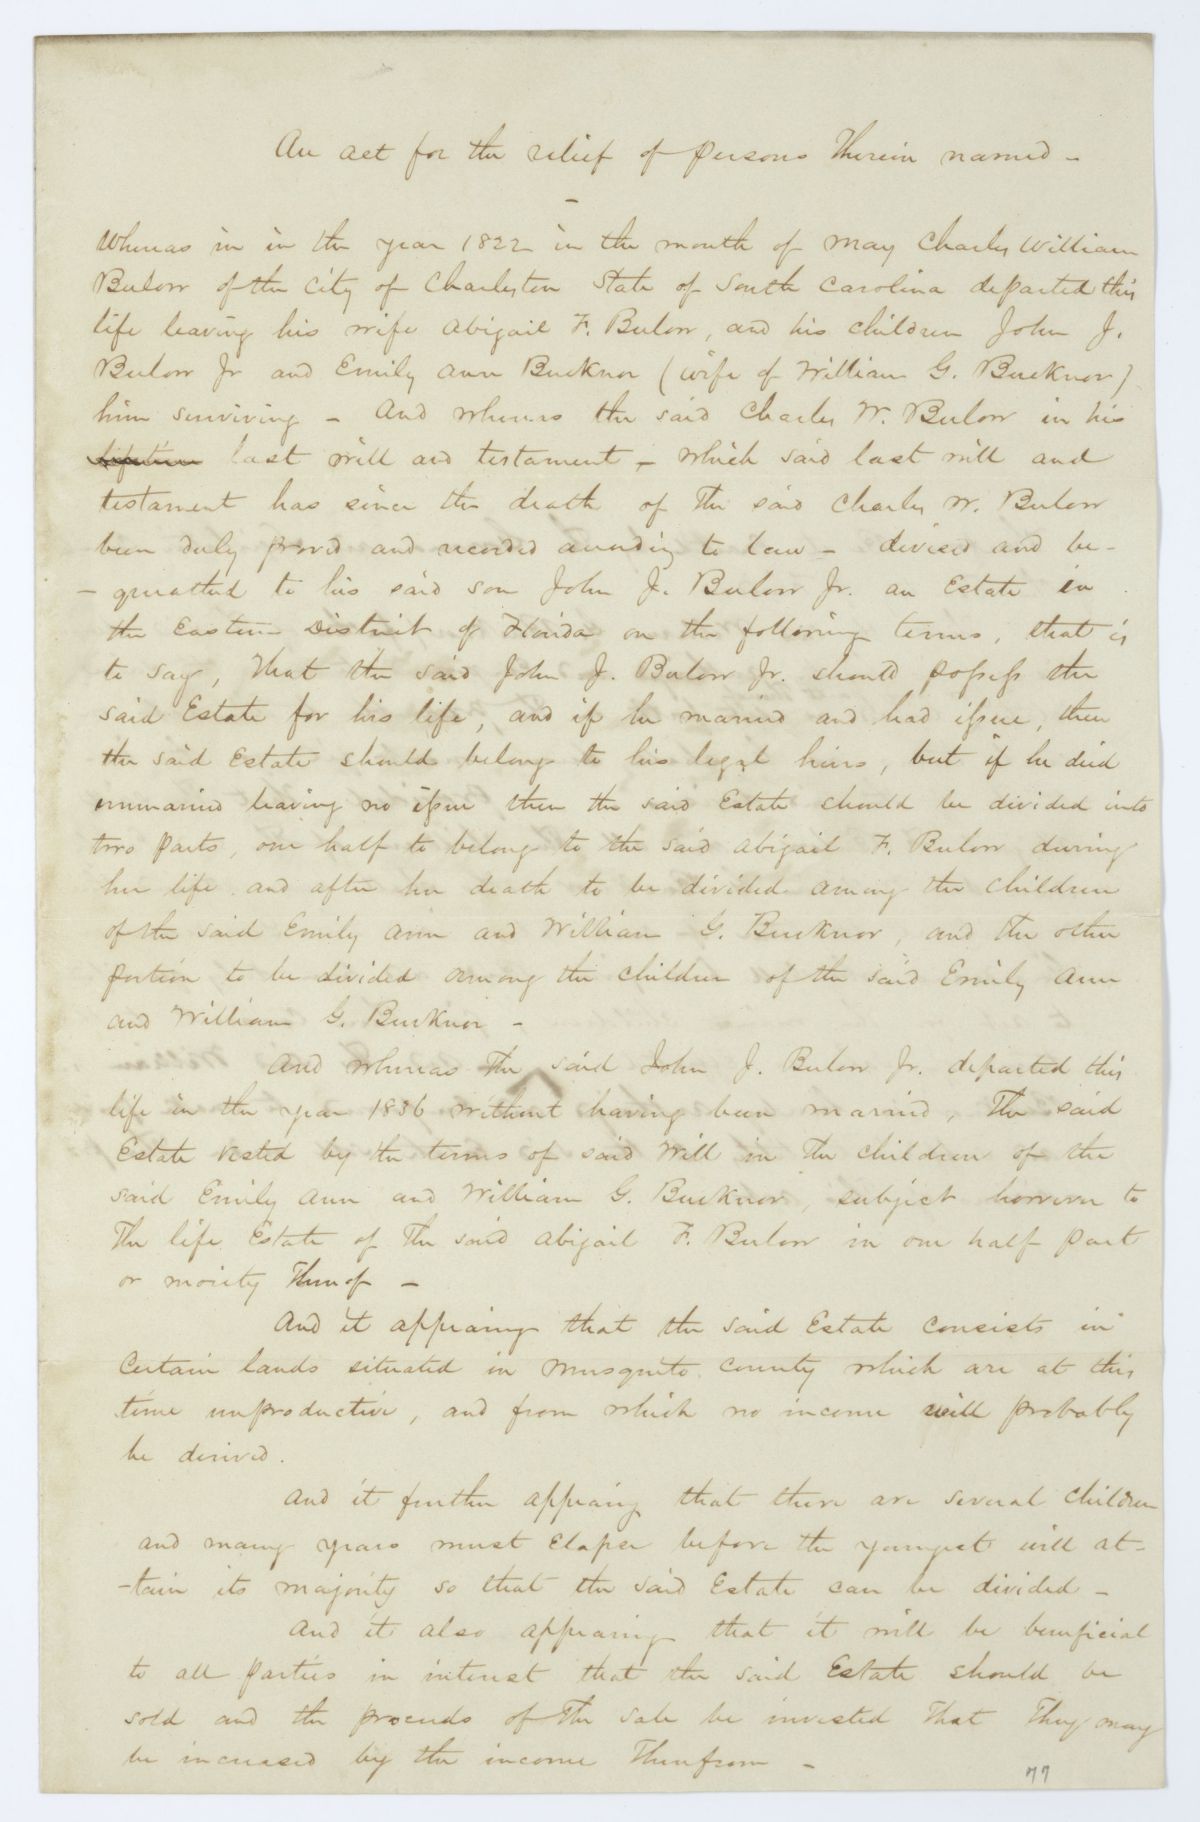 An act for the relief of persons Therein named -
-
Whereas in in the year 1822 in the month of May Charles William
Bulow of the City of Charleston State of South Carolina departed this
life leaving his wife Abigail F. Bulow, and his children John J.
Bulow Jr and Emily Ann Bucknor (wife of William G. Bucknor)
him surviving - And whereas the said Charles W. Bulow in his
lifetime last will and testament - which said last will and
testament has since the death of The said Charles W. Bulow
been duly proved and recorded according to law - devised and be-
- queathed to his said son John J. Bulow Jr. an Estate in
the Eastern District of Florida on the following terms, that is
to say, That the said John J. Bulow Jr. should possess the
said Estate for his life, and if he married and had issue, then
the said Estate should belong to his legal heirs, but if he died
unmarried leaving no issue then the said Estate should be divided into
two parts, one half to belong to the said Abigail F. Bulow during
her life and after her death to be divided among the children
of the said Emily Ann and William G. Bucknor, and the other
portion to be divided among the children of the said Emily Ann
and William G. Bucknor -
And whereas The said John J. Bulow Jr. departed this
life in the year 1836 without having been married, The said
Estate vested by the terms of said Will in The children of the
said Emily Ann and William G. Bucknor, subject however to
The life Estate of The said Abigail F. Bulow in one half part
or moiety Thereof -
And it appearing that the said Estate consists in
Certain lands situated in Musquito County which are at this
time unproductive, and from which no income will probably
be derived.
And it further appearing that there are several children
and many years must Elapse before the youngest will at-
-tain its majority so that the said Estate can be divided -
And it also appearing that it will be beneficial
to all parties in interest that the said Estate should be
sold and the proceeds of The sale be invested That They may
be increased by the income Therefrom -
77